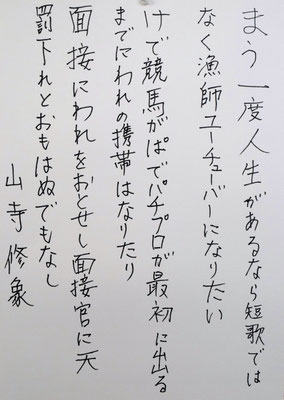 まう一度人生があるなら短歌では
なく漁師ユーチューバーになりたい
けで競馬がぱでパチプロが最初に出る
までにわれの携帯はなりたり
面接にわれをおとせし面接官に天
罰下れとおもはぬでもなし
山寺修象